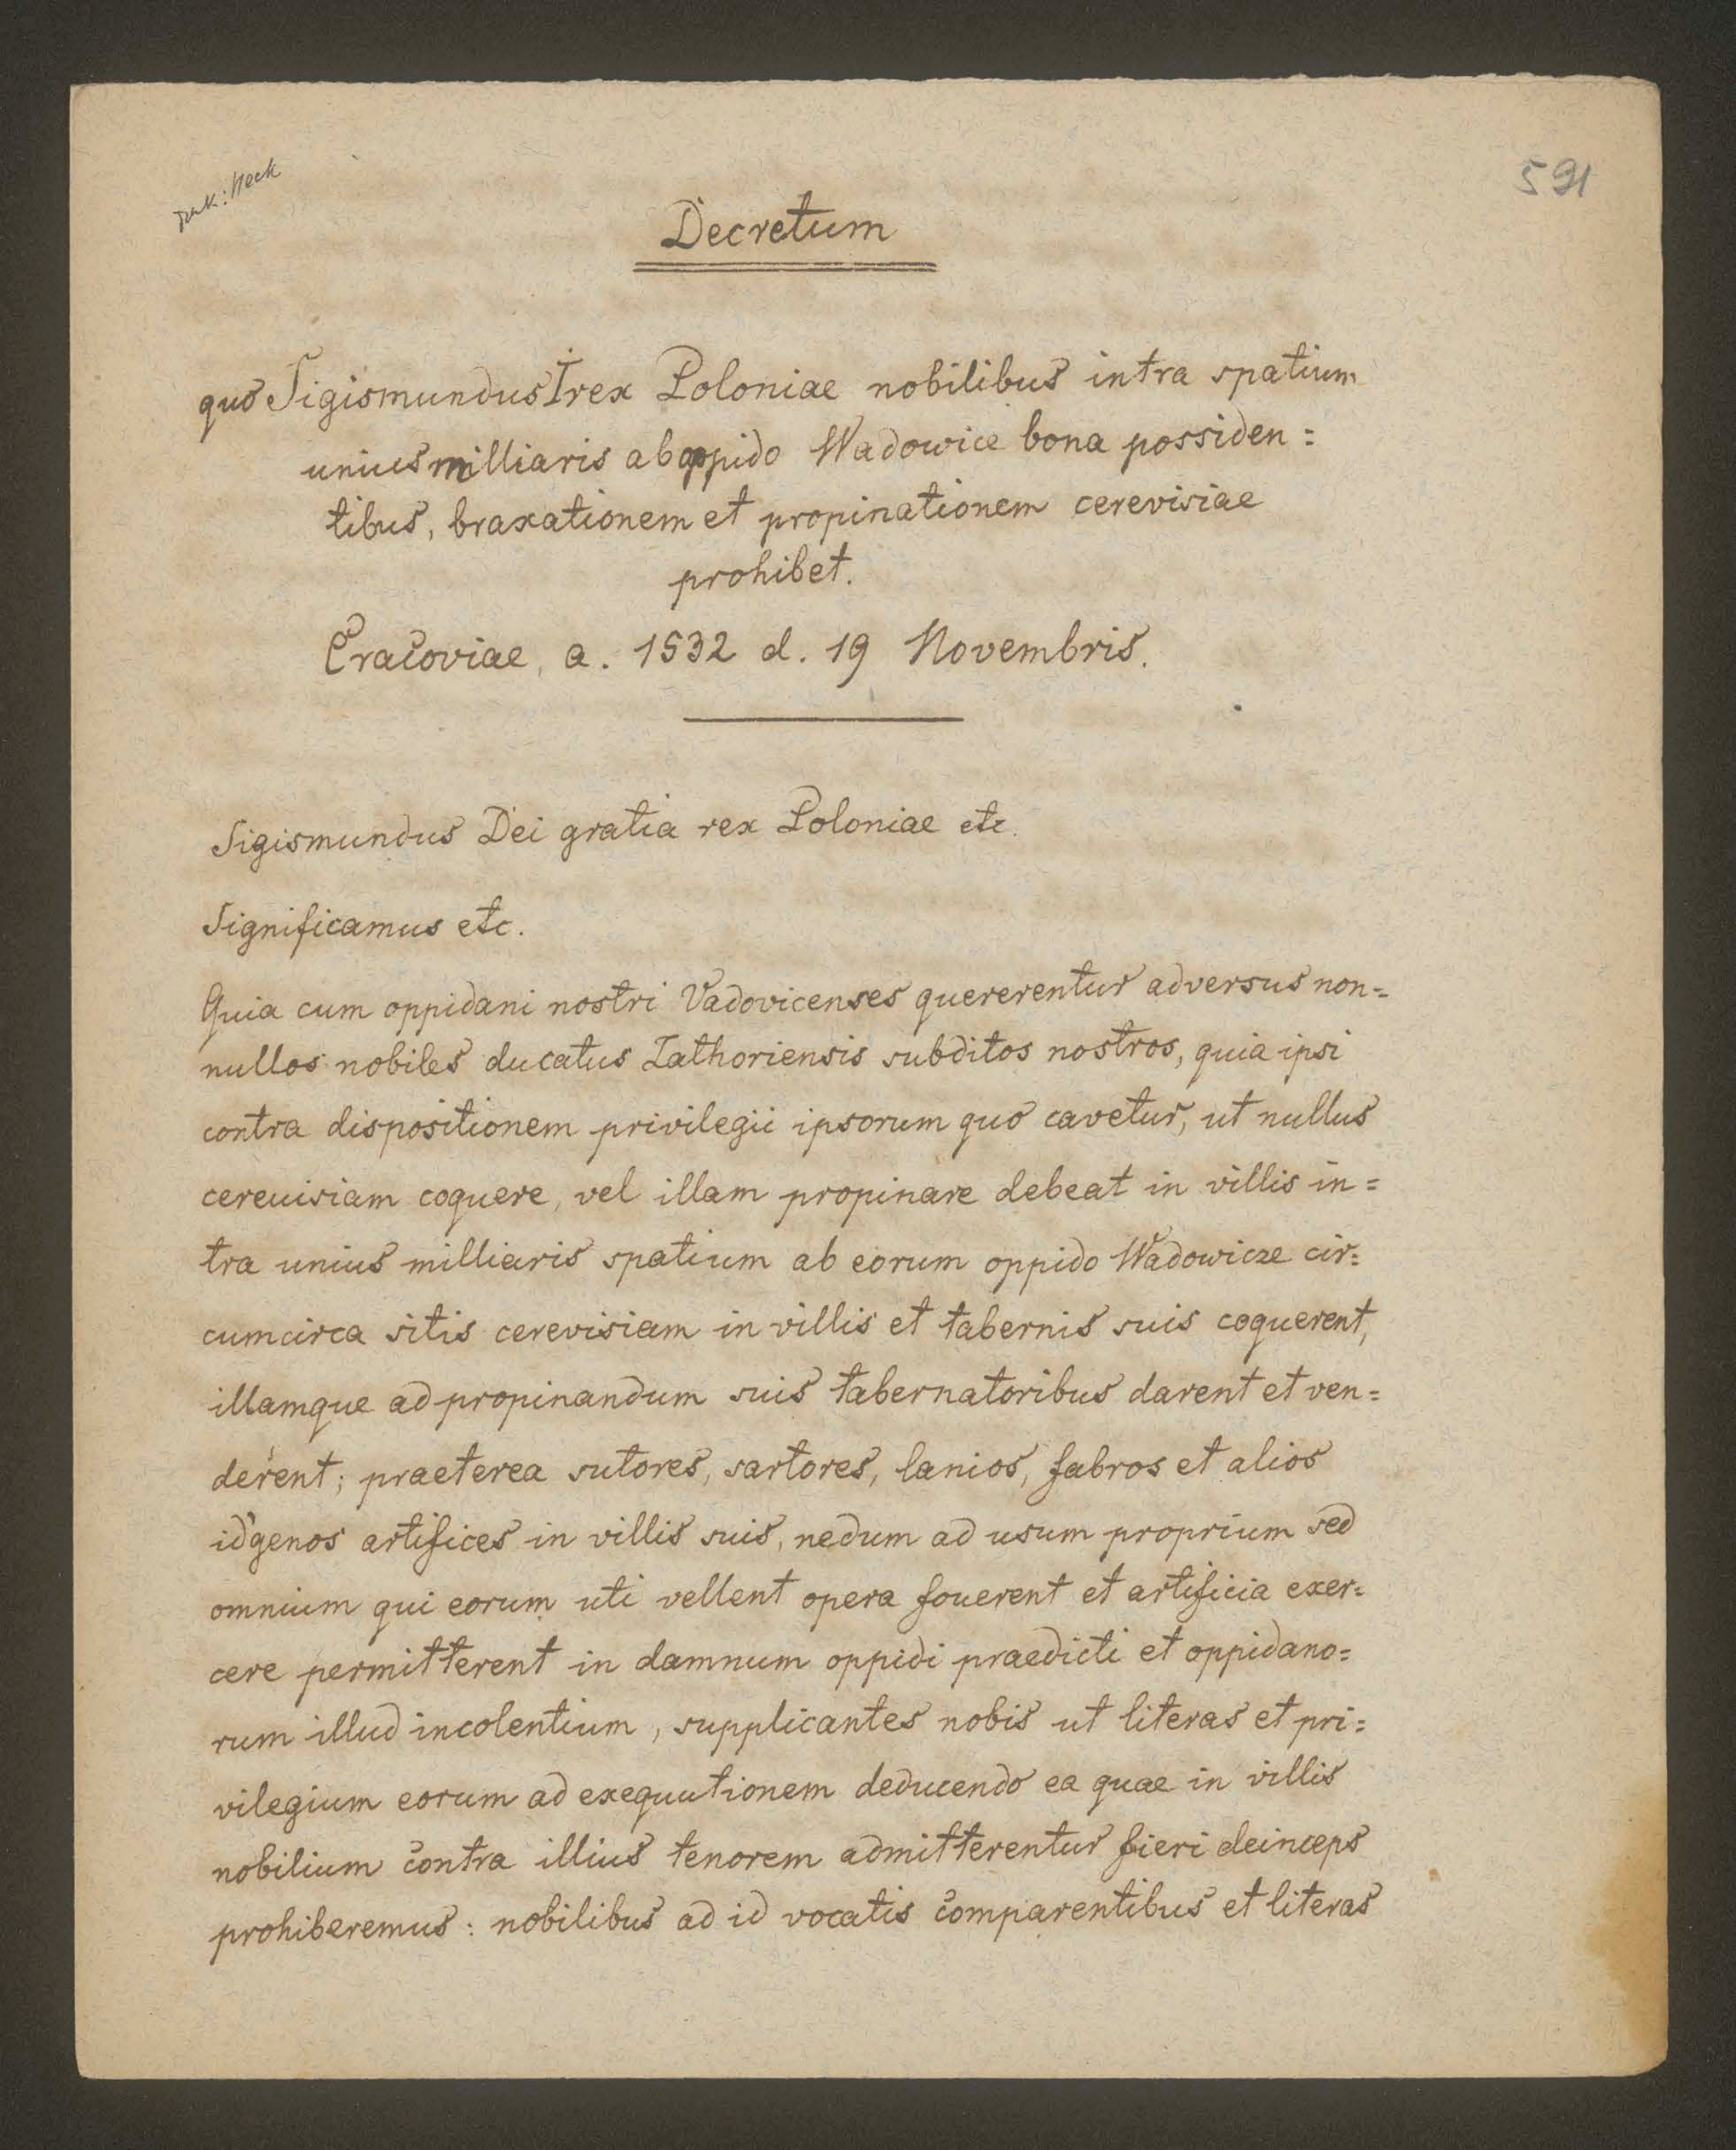 rak: Heck
591
Decretum
quo Sigismundus I rex Poloniae nobilibus intra spatium
unius milliaris ab oppido Wadowice bona possiden=
tibus, braxationem et propinationem cerevisiae
prohibet.
Cracoviae, a. 1532 d. 19 Novembris.
Sigismundus Dei gratia rex Poloniae etc.
Significamus etc.
Quia cum oppidani nostri Vadovicenses quererentur adversus non=
nullos nobiles ducatus Zathoriensis subditos nostros, quia ipsi
contra dispositionem privilegii ipsorum quo cavetur, ut nullus
cereuisiam coquere, vel illam propinare debeat in villis in=
tra unius milliaris spatium ab eorum oppido Wadowicze cir=
cumcirca sitis cerevisiam in villis et tabernis suis coquerent,
illamque ad propinandum suis tabernatoribus darent et ven=
derent; praeterea sutores, sartores, lanios, fabros et alios
id genos artifices in villis suis, nedum ad usum proprium sed
omnium qui eorum uti vellent opera fouerent et artificia exer=
cere permitterent in damnum oppidi praedicti et oppidano=
rum illud incolentium, supplicantes nobis ut literas et pri=
vilegium eorum ad exequutionem deducendo ea quae in villis
nobilium contra illius tenorem admitterentur fieri deinceps
prohiberemus: nobilibus ad id vocatis comparentibus et literas